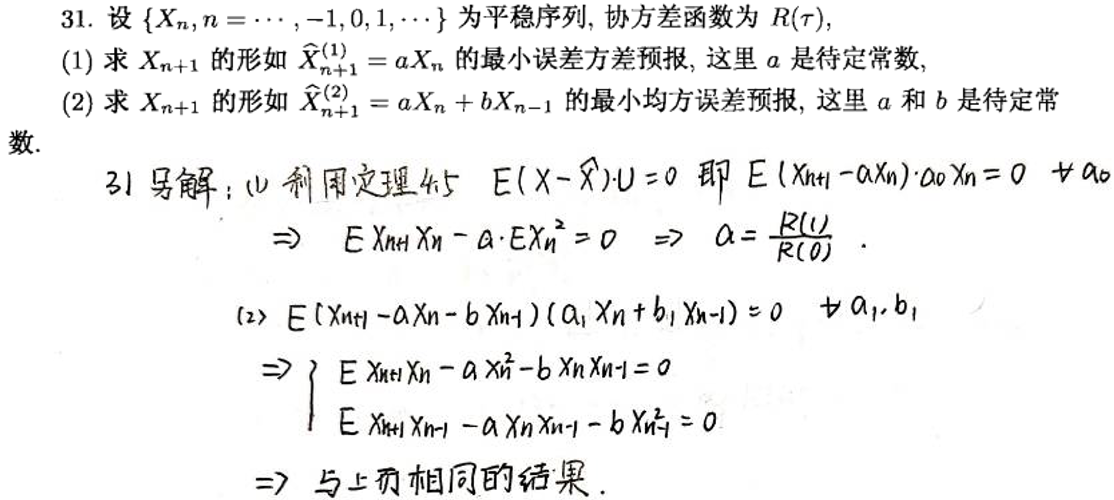 31. 设 {Xₙ, n = ⋯, −1, 0, 1, ⋯} 为平稳序列, 协方差函数为 R(τ),
(1) 求 Xₙ₊₁ 的形如 X̂ₙ₊₁⁽¹⁾ = aXₙ 的最小误差方差预报, 这里 a 是待定常数,
(2) 求 Xₙ₊₁ 的形如 X̂ₙ₊₁⁽²⁾ = aXₙ + bXₙ₋₁ 的最小均方误差预报, 这里 a 和 b 是待定常
数.
31 另解: (1) 利用定理4.5 E(X − X̂)·U = 0 即 E(Xₙ₊₁ − aXₙ)·a₀Xₙ = 0 ∀ a₀
⇒ E Xₙ₊₁Xₙ − a·EXₙ² = 0 ⇒ a = R(1)/R(0) .
(2) E(Xₙ₊₁ − aXₙ − bXₙ₋₁)(a₁Xₙ + b₁Xₙ₋₁) = 0 ∀ a₁, b₁
⇒ { E Xₙ₊₁Xₙ − aXₙ² − bXₙXₙ₋₁ = 0
E Xₙ₊₁Xₙ₋₁ − aXₙXₙ₋₁ − bXₙ₋₁² = 0
⇒ 与上页相同的结果.